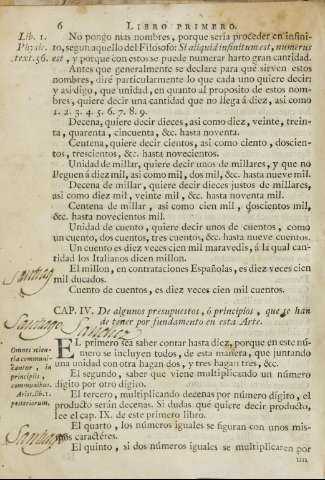 6 LIBRO PRIMERO.
Lib. 1.
Physic.
text. 56.
No pongo mas nombres, porque sería proceder en infini-
to, segun aquello del Filósofo: Si aliquid infinitum est, numerus
est, y porque con estos se puede numerar harto gran cantidad.
Antes que generalmente se declare para qué sirven estos
nombres, diré particularmente lo que cada uno quiere decir:
y asi digo, que unidad, en quanto al proposito de estos nom-
bres, quiere decir una cantidad que no llega á diez, asi como
1. 2. 3. 4. 5. 6. 7. 8. 9.
Decena, quiere decir dieces, asi como diez, veinte, trein-
ta, quarenta, cincuenta, &c. hasta noventa.
Centena, quiere decir cientos, asi como ciento, doscien-
tos, trescientos, &c. hasta novecientos.
Unidad de millar, quiere decir unos de millares, y que no
lleguen á diez mil, asi como mil, dos mil, &c. hasta nueve mil.
Decena de millar, quiere decir dieces justos de millares,
asi como diez mil, veinte mil, &c. hasta noventa mil.
Centena de millar, asi como cien mil, doscientos mil,
&c. hasta novecientos mil.
Unidad de cuento, quiere decir unos de cuentos, como
un cuento, dos cuentos, tres cuentos, &c. hasta nueve cuentos.
Un cuento es diez veces cien mil maravedis, á la qual can-
tidad los Italianos dicen millon.
El millon, en contrataciones Españolas, es diez veces cien
mil ducados.
Cuento de cuentos, es diez veces cien mil cuentos.
Santiago
CAP. IV. De algunos presupuestos, ó principios, que se han
de tener por fundamento en esta Arte.
Santiago Sanchez
Omnes scien-
tiæ communi-
cantur, in
principiis,
communibus.
Arist. lib. 1.
posteriorum.
EL primero sea saber contar hasta diez, porque en este nú-
mero se incluyen todos, de esta manera, que juntando
una unidad con otra hagan dos, y tres hagan tres, &c.
El segundo, saber que viene multiplicando un número
dígito por otro dígito.
El tercero, multiplicando decenas por número dígito, el
producto serán decenas. Si dudas que quiere decir producto,
lee el cap. IX. de este primero libro.
El quarto, los números iguales se figuran con unos mis-
mos caractéres.
Santiago
El quinto, si dos números iguales se multiplicaren por
un